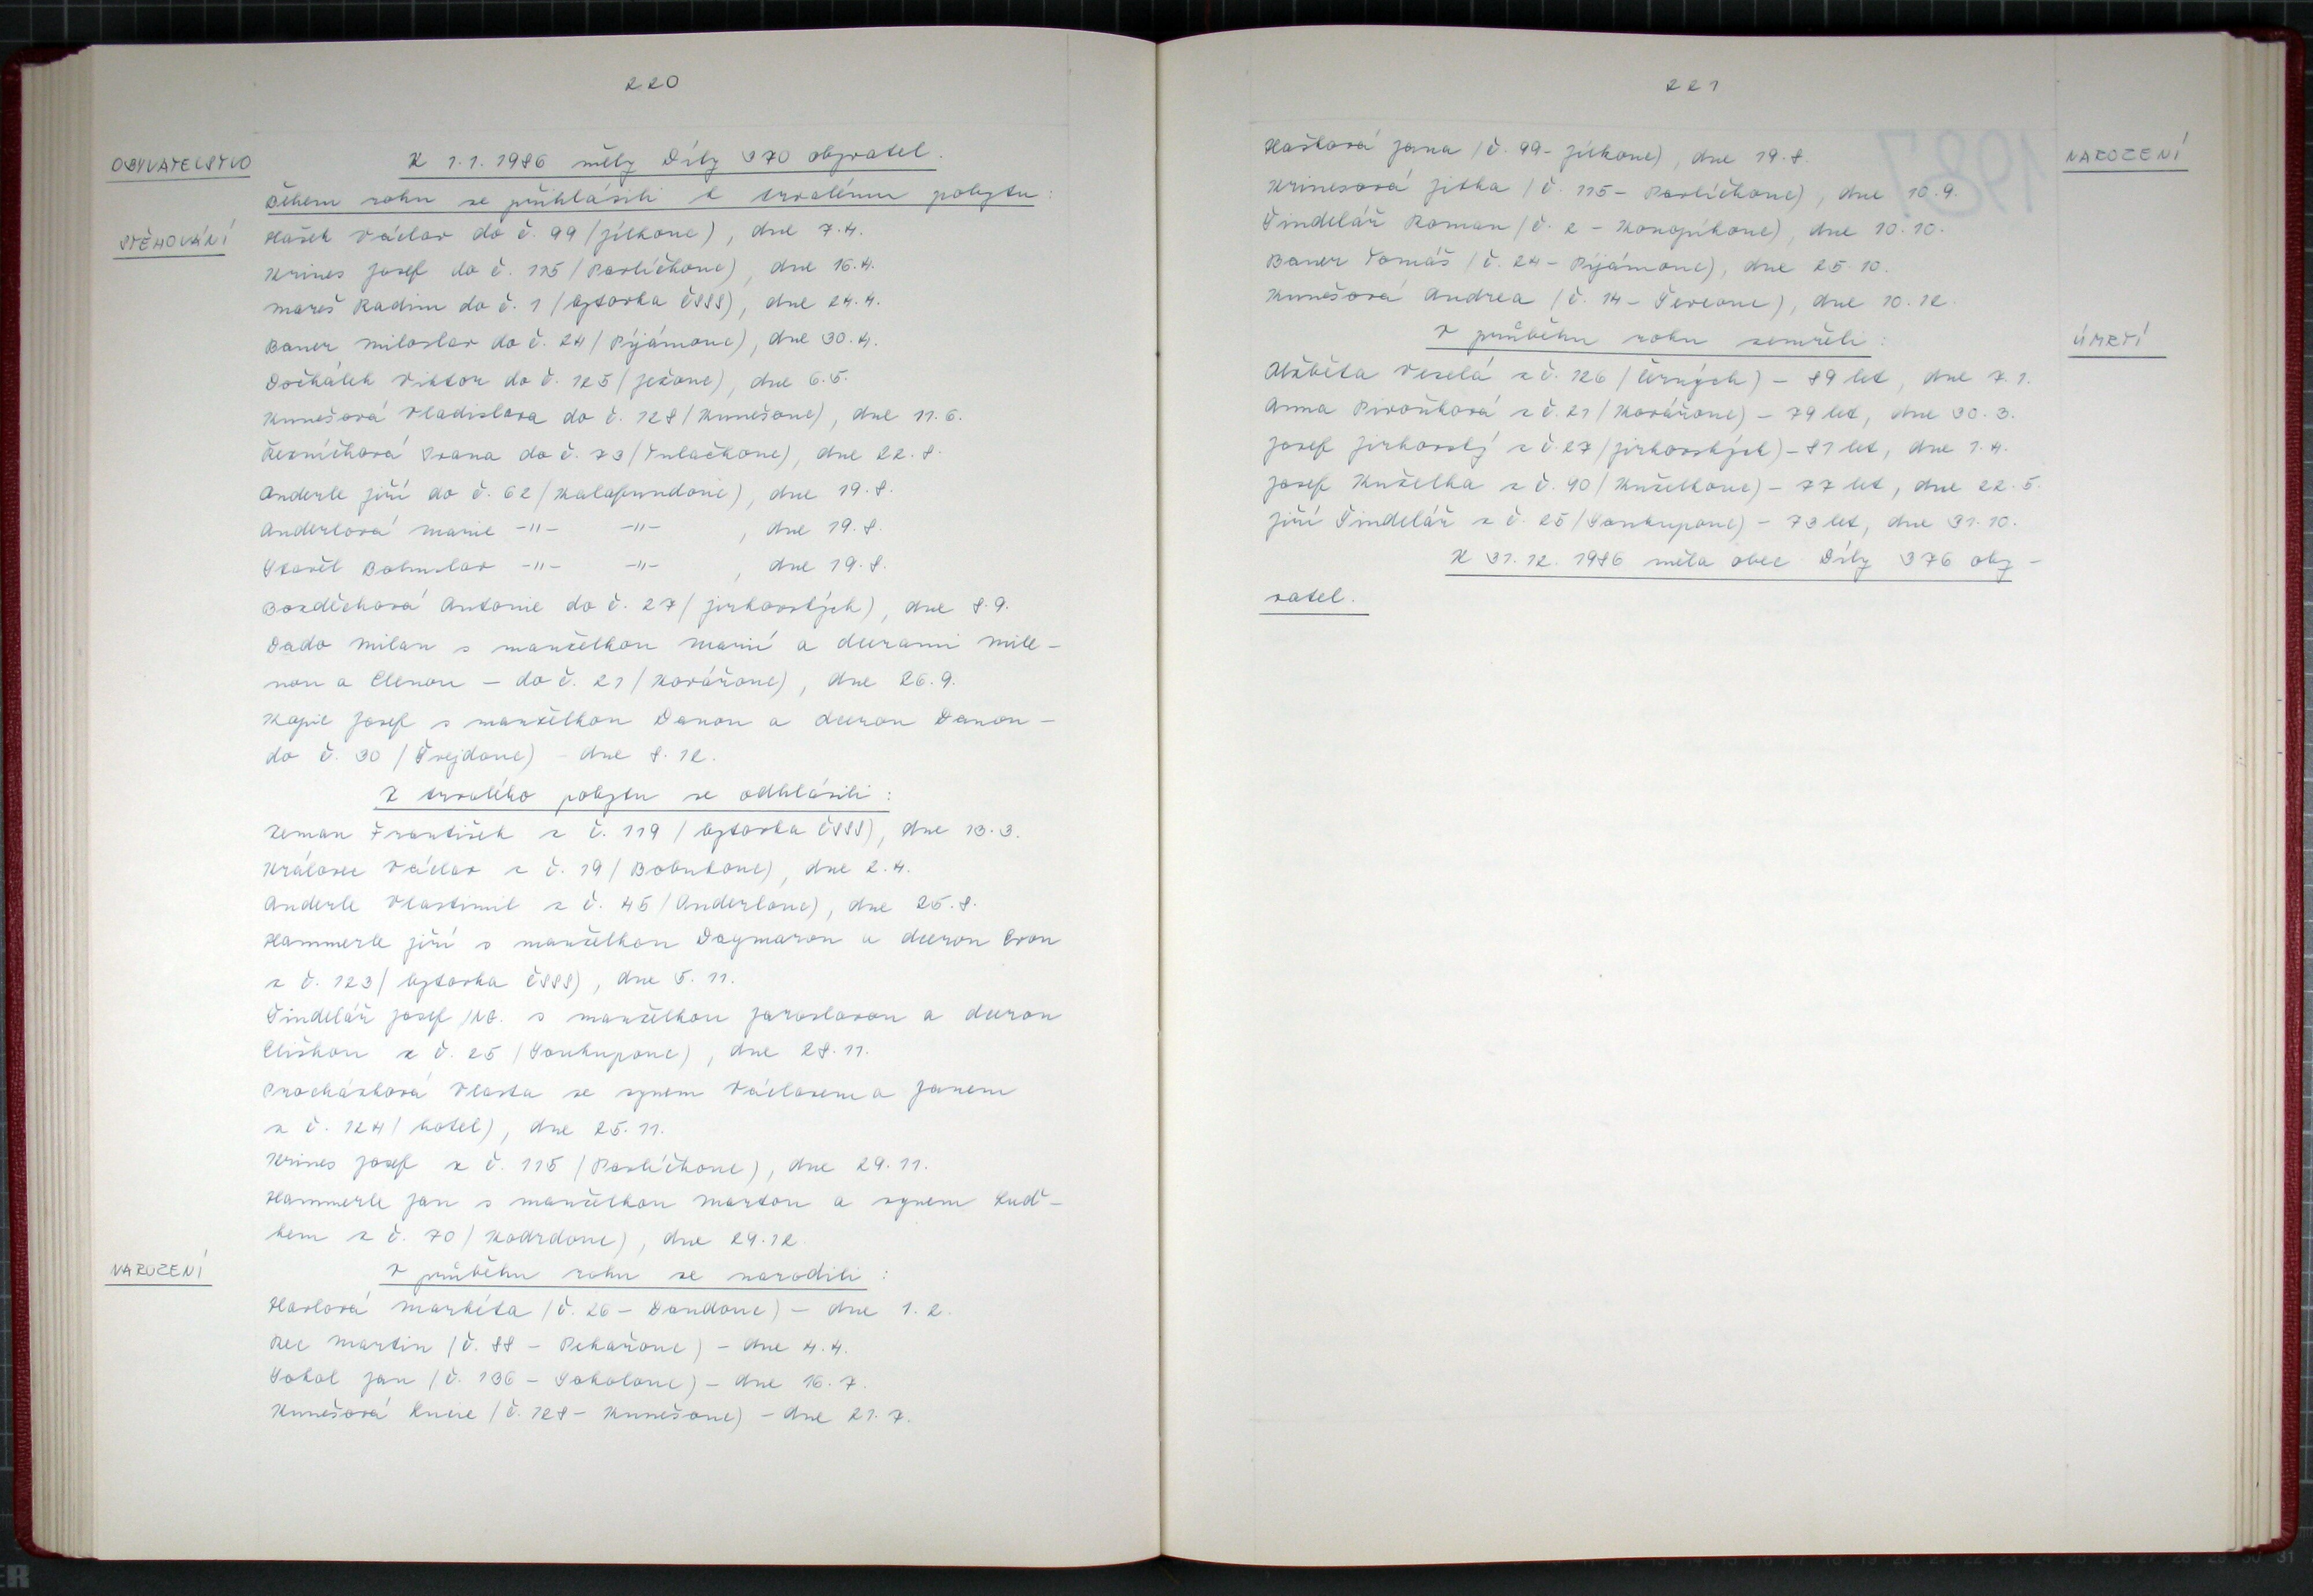 220
OBYVATELSTVO
K 1.1. 1986 měly Díly 370 obyvatel.
Během roku se přihlásili k trvalému pobytu:
STĚHOVÁNÍ
Hašek Václav do č. 99 /Jílkouc), dne 7.4.
Krines Josef do č. 115 /Pavlíčkouc), dne 16.4.
Mareš Radim do č. 1 /bytovka ČSSS), dne 24.4.
Bauer Miloslav do č. 24 /Pýjámouc), dne 30.4.
Dočkálek Viktor do č. 125 /Ježouc), dne 6.5.
Kunešová Vladislava do č. 128 /Kunešouc), dne 11.6.
Řezníčková Ivana do č. 73 /Tulačkouc), dne 22.8.
Anderle Jiří do č. 62 /Kalafundouic), dne 19.8.
Anderlová Marie -"- -"- , dne 19.8.
Bohuslav -"- -"- , dne 19.8.
Bozděchová Antonie do č. 27 /Jirkovských), dne 8.9.
Dado Milan s manželkou Marií a dcerami Mile-
nou a Elenou - do č. 21 /Kovářouc), dne 26.9.
Kopic Josef s manželkou Danou a dcerou Danou -
do č. 30 /Švejdouc) - dne 8.12.
Z trvalého pobytu se odhlásili:
Zeman František z č. 119 /bytovka ČSSS), dne 13.3.
Královec Václav z č. 19 /Bobukouc), dne 2.4.
Anderle Vlastimil z č. 45 /Anderlouc), dne 25.8.
Hammerle Jiří s manželkou Dagmarou a dcerou Evou
z č. 123 /bytovka ČSSS), dne 5.11.
Šindelář Josef ml. s manželkou Jaroslavou a dcerou
Eliškou z č. 25 /Soukupouc), dne 28.11.
Procházková Vlasta se synem Václavem a Janem
z č. 124 /hotel), dne 25.11.
Krines Josef z č. 115 /Pavlíčkouc), dne 29.11.
Hammerle Jan s manželkou Martou a synem Luď-
kem z č. 70 /Kodrdouc), dne 29.12.
NAROZENÍ
V průběhu roku se narodili:
Havlová Markéta /č. 26 - Dandouc) - dne 1.2.
Rec Martin /č. 88 - Pekařouc) - dne 4.4.
Sokol Jan /č. 136 - Sokolouc) - dne 16.7.
Kunešová Lucie /č. 128 - Kunešouc) - dne 21.7.
221
Hašková Jana /č. 99 - Jílkouc), dne 19.8.
NAROZENÍ
Krinesová Jitka /č. 115 - Pavlíčkouc), dne 10.9.
Šindelář Roman /č. 2 - Konopíkouc), dne 10.10.
Bauer Tomáš /č. 24 - Pýjámouc), dne 25.10.
Kunešová Andrea /č. 14 - Ševcouc), dne 10.12.
V průběhu roku zemřeli:
ÚMRTÍ
Alžběta Veselá z č. 126 /Černých) - 89 let, dne 7.1.
Anna Pivoňková z č. 21 /Kovářouc) - 79 let, dne 30.3.
Josef Jirkovský z č. 27 /Jirkovských) - 81 let, dne 1.4.
Josef Kuželka z č. 90 /Kuželkouc) - 77 let, dne 22.5.
Jiří Šindelář z č. 25 /Soukupouc) - 73 let, dne 31.10.
K 31.12. 1986 měla obec Díly 376 oby-
vatel.